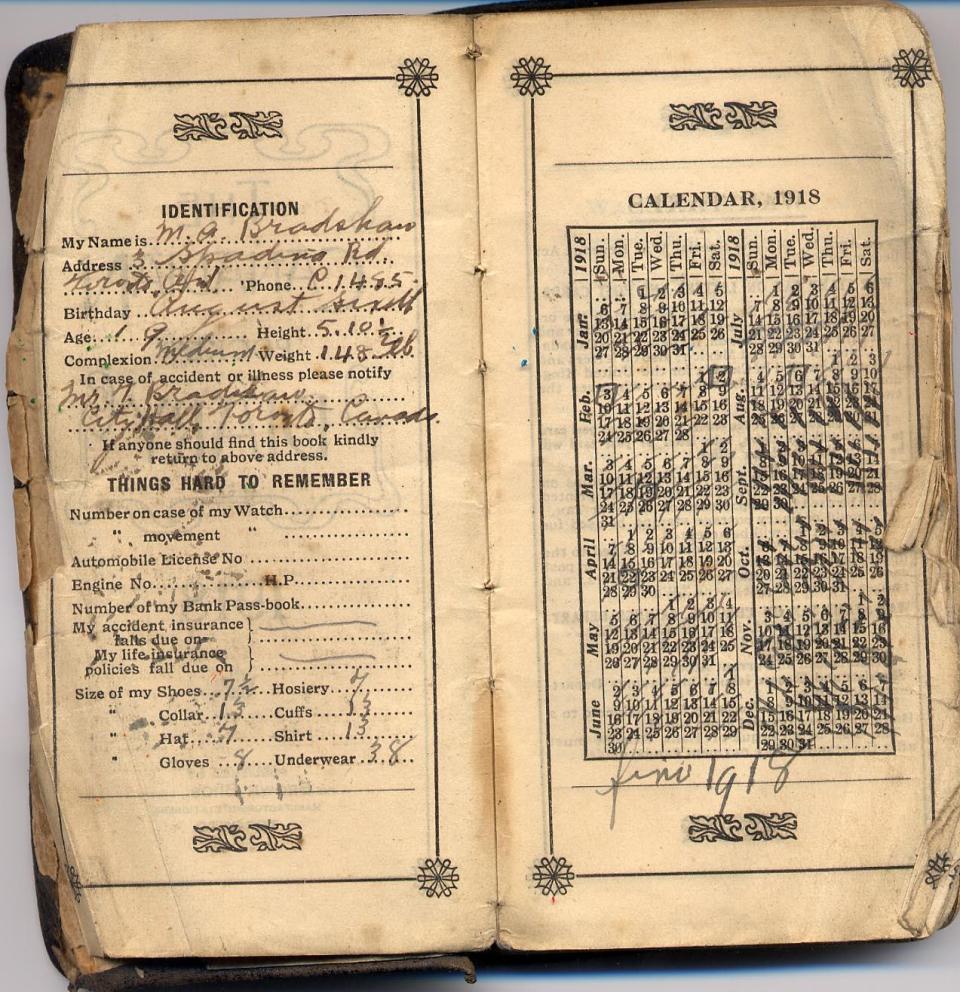 IDENTIFICATION
My Name is M. A. Bradshaw
Address 3 Spadina Rd.
Toronto Ont 'Phone C.1485
Birthday August sixth
Age 19 Height 5.10½
Complexion Medium Weight 148 lb
In case of accident or illness please notify
Mr T. Bradshaw
City Hall, Toronto, Canada.
If anyone should find this book kindly
return to above address.
THINGS HARD TO REMEMBER
Number on case of my Watch
" movement "
Automobile License No
Engine No. H.P.
Number of my Bank Pass-book
My accident insurance
falls due on
My life insurance
policies fall due on
Size of my Shoes 7½ Hosiery 7
" Collar 13 Cuffs 13
" Hat 7 Shirt 13
" Gloves 8 Underwear 38
CALENDAR, 1918
1918 Sun. Mon. Tue. Wed. Thu. Fri. Sat.
Jan.
1 2 3 4 5
6 7 8 9 10 11 12
13 14 15 16 17 18 19
20 21 22 23 24 25 26
27 28 29 30 31
Feb.
1 2
3 4 5 6 7 8 9
10 11 12 13 14 15 16
17 18 19 20 21 22 23
24 25 26 27 28
Mar.
1 2
3 4 5 6 7 8 9
10 11 12 13 14 15 16
17 18 19 20 21 22 23
24 25 26 27 28 29 30
31
April
1 2 3 4 5 6
7 8 9 10 11 12 13
14 15 16 17 18 19 20
21 22 23 24 25 26 27
28 29 30
May
1 2 3 4
5 6 7 8 9 10 11
12 13 14 15 16 17 18
19 20 21 22 23 24 25
26 27 28 29 30 31
June
1
2 3 4 5 6 7 8
9 10 11 12 13 14 15
16 17 18 19 20 21 22
23 24 25 26 27 28 29
30
1918 Sun. Mon. Tue. Wed. Thu. Fri. Sat.
July
1 2 3 4 5 6
7 8 9 10 11 12 13
14 15 16 17 18 19 20
21 22 23 24 25 26 27
28 29 30 31
Aug.
1 2 3
4 5 6 7 8 9 10
11 12 13 14 15 16 17
18 19 20 21 22 23 24
25 26 27 28 29 30 31
Sept.
1 2 3 4 5 6 7
8 9 10 11 12 13 14
15 16 17 18 19 20 21
22 23 24 25 26 27 28
29 30
Oct.
1 2 3 4 5
6 7 8 9 10 11 12
13 14 15 16 17 18 19
20 21 22 23 24 25 26
27 28 29 30 31
Nov.
1 2
3 4 5 6 7 8 9
10 11 12 13 14 15 16
17 18 19 20 21 22 23
24 25 26 27 28 29 30
Dec.
1 2 3 4 5 6 7
8 9 10 11 12 13 14
15 16 17 18 19 20 21
22 23 24 25 26 27 28
29 30 31
finis 1918